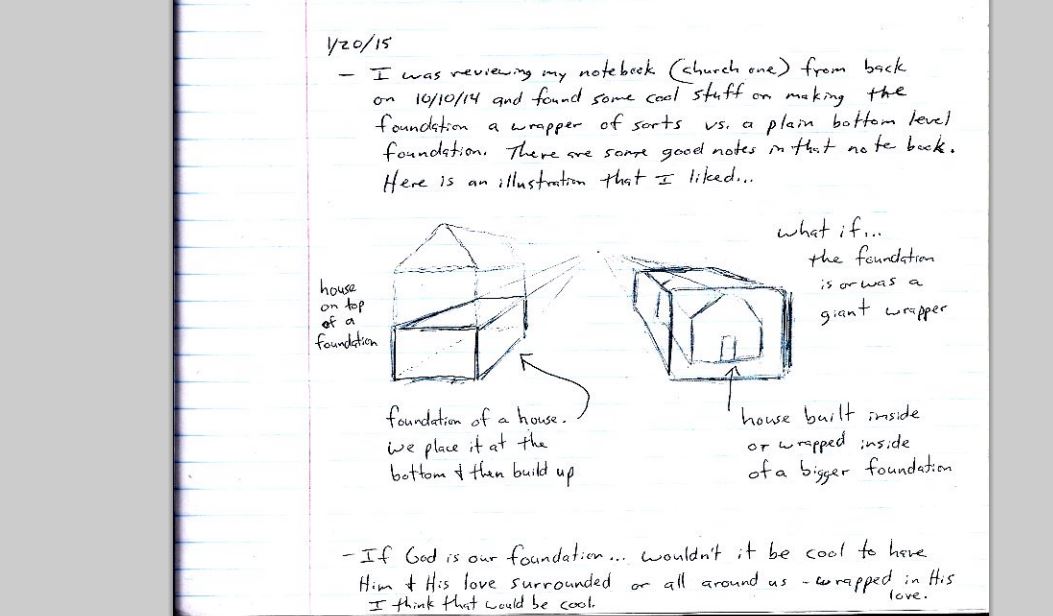 1/20/15
- I was reviewing my notebook (church one) from back
on 10/10/14 and found some cool stuff on making the
foundation a wrapper of sorts vs. a plain bottom level
foundation. There are some good notes in that note book.
Here is an illustration that I liked...
house
on top
of a
foundation
what if...
the foundation
is or was a
giant wrapper
foundation of a house.
we place it at the
bottom & then build up
house built inside
or wrapped inside
of a bigger foundation
- If God is our foundation... wouldn't it be cool to have
Him & His love surrounded or all around us - wrapped in His
love.
I think that would be cool.